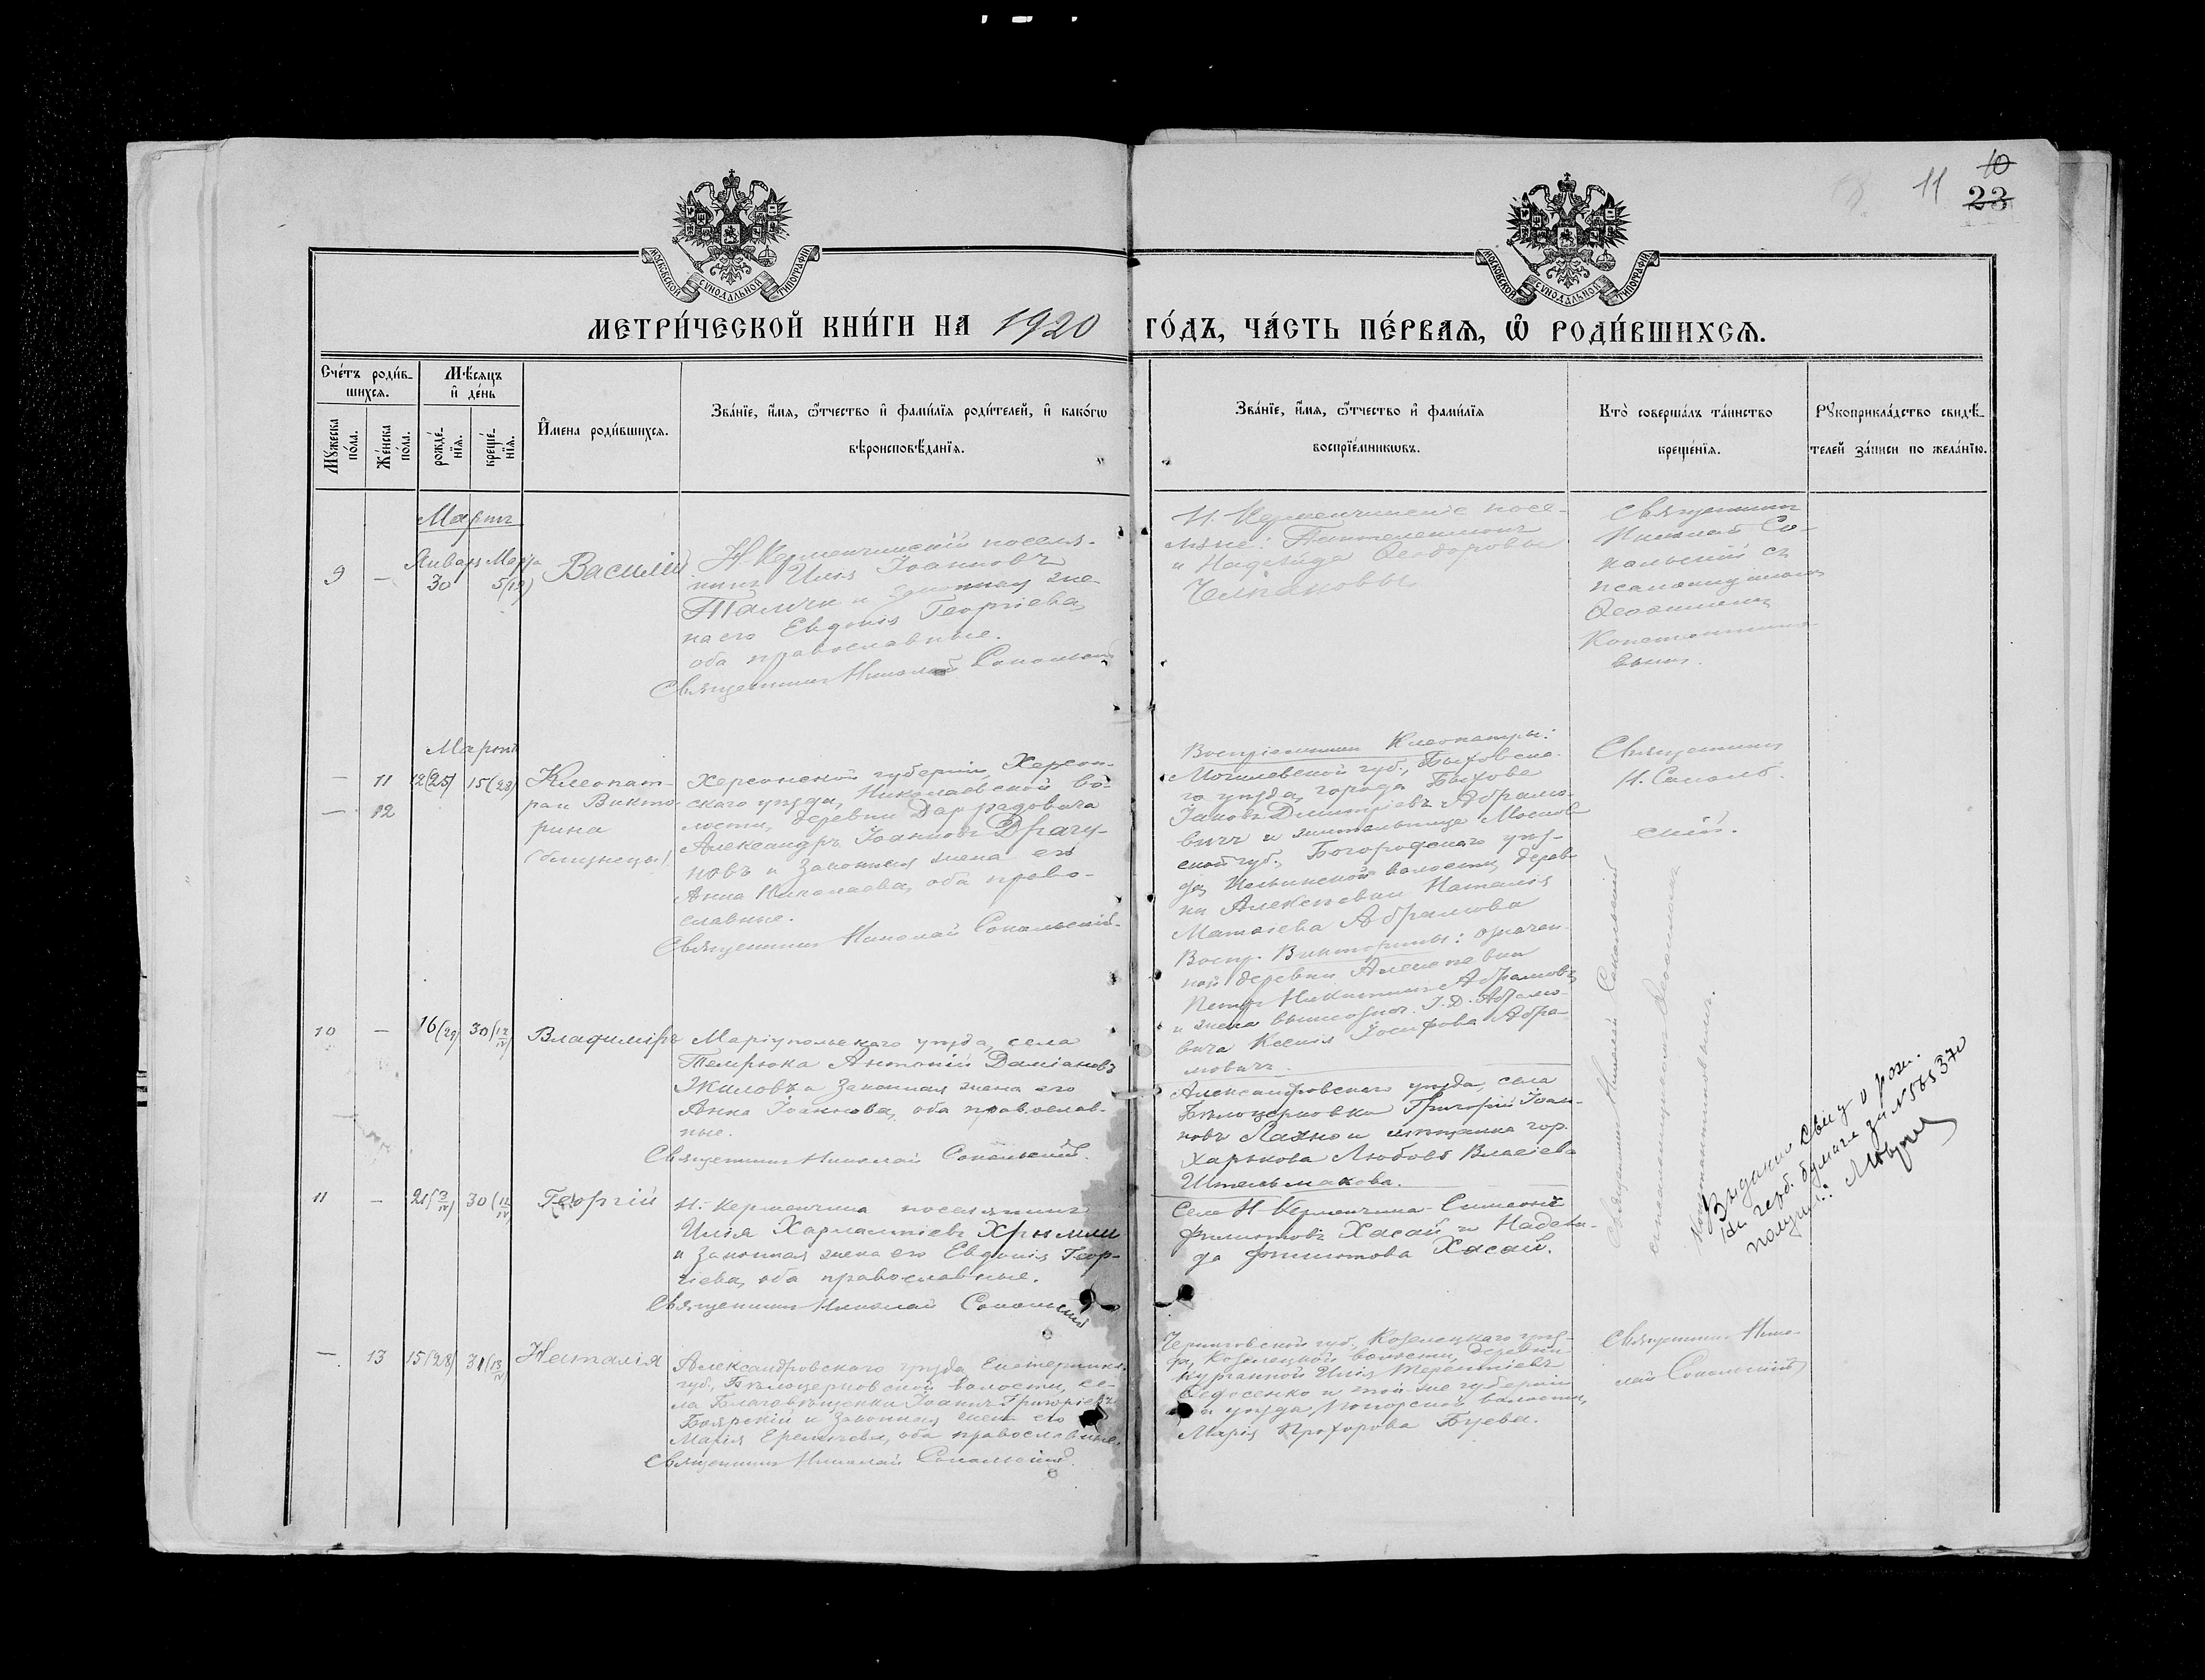 10
11
23
МОСКОВСКОЙ СУНОДАЛЬНОЙ ТИПОГРАФІИ
МОСКОВСКОЙ СУНОДАЛЬНОЙ ТИПОГРАФІИ
МЕТРИ́ЧЕСКОЙ КНИ́ГИ НА 1920 ГО́ДЪ, ЧА́СТЬ ПЕ́РВАѦ, Ѡ҆ РОДИ́ВШИХСѦ.
Сче́тъ роди́в-
шихсѧ.
Мѣ́сѧцъ
и҆ де́нь
Мꙋ́жеска
по́ла.
Же́нска
по́ла.
рожде́-
нїѧ.
креще́-
нїѧ.
И҆мена роди́вшихсѧ.
Зва́нїе, и҆́мѧ, ѻ҆́тчество и҆ фами́лїѧ роди́телей, и҆ како́гѡ
вѣроисповѣ́данїѧ.
Зва́нїе, и҆́мѧ, ѻ҆́тчество и҆ фами́лїѧ
воспрїе́мникѡвъ.
Кто̀ соверша́лъ та́инство
креще́нїѧ.
Рꙋкоприкла́дство свидѣ́-
телей за́писи по жела́нїю.
Мартъ
Январь Марта
9 — 30 5(18) Василій
Н. Керменчикскій поселя-
нинъ Илія Іоанновъ
и законная же-
на его Евдокія Георгіева,
оба православные.
Священникъ Николай Сокольскій
Н. Керменчикскіе посе-
ляне: Пантелеимонъ
и Надежда Ѳеодоровы
Челпановы
Священникъ
Николай Со-
кольскій съ
псаломщикомъ
Константино-
вымъ.
Мартъ
— 11 12(25) 15(28) Клеопат-
— 12 ра и Викто-
рина
(близнецы)
Херсонской губерніи, Херсон-
скаго уѣзда, Николаевской во-
лости, деревни
Александръ Іоанновъ Драгу-
новъ и законная жена его
Анна Николаева, оба право-
славные.
Священникъ Николай Сокольскій.
Воспріемники Клеопатры:
Могилевской губ., Быховска-
го уѣзда, города Быхова
Іаковъ Димитріевъ Абрамо-
вичъ и жительница Москов-
ской губ., Богородскаго уѣз-
да, Ильинской волости, дерев-
ни Алексѣевки Наталія
Матѳіева Абрамова
Воспр. Викторины: означен-
ной деревни Алексѣевки
Петръ Никитинъ Абрамовъ
и жена вышеознач. І. Д. Абрамо-
вича Ксенія Іосифова Абра-
мовичъ.
Священникъ
Н. Соколь-
скій.
10 — 16(29) 30(12/IV) Владиміръ
Маріупольскаго уѣзда, села
Темрюка Антоній Даміановъ
Жиловъ и законная жена его
Анна Іоаннова, оба православ-
ные.
Священникъ Николай Сокольскій.
Александровскаго уѣзда, села
Бѣлоцерковка Григорій Іоан-
новъ Лахно и мѣщанка гор.
Харькова Любовь Власіева
Штельмахова.
11 — 21(3/IV) 30(12/IV) Георгій
Н. Керменчика поселянинъ
Илія Харлампіевъ Хрымли
и законная жена его Евдокія Геор-
гіева, оба православные.
Священникъ Николай Сокольскій
Села Н-Керменчика Симеонъ
Филиповъ Хасай и Надеж-
да Филипова Хасай.
Священникъ Николай Сокольскій
съ псаломщикомъ
Константиновымъ.
Выдано свид о рож.
на герб. бумаге за №
получил:
— 13 15(28) 31(13/IV) Наталія
Александровскаго уѣзда, Екатеринос.
губ., Бѣлоцерковской волости, се-
ла Благовѣщенки Іоаннъ Григоріевъ
Боярскій и законная жена его
Марія Еремѣева, оба православные.
Священникъ Николай Сокольскій.
Черниговской губ., Козелецкаго уѣз-
да, Козелецкой волости, деревни
Курганной Илія Терентіевъ
Ѳедосенко и той-же губерніи
и уѣзда, волости,
Марія Прохорова Буева.
Священникъ Нико-
лай Сокольскій